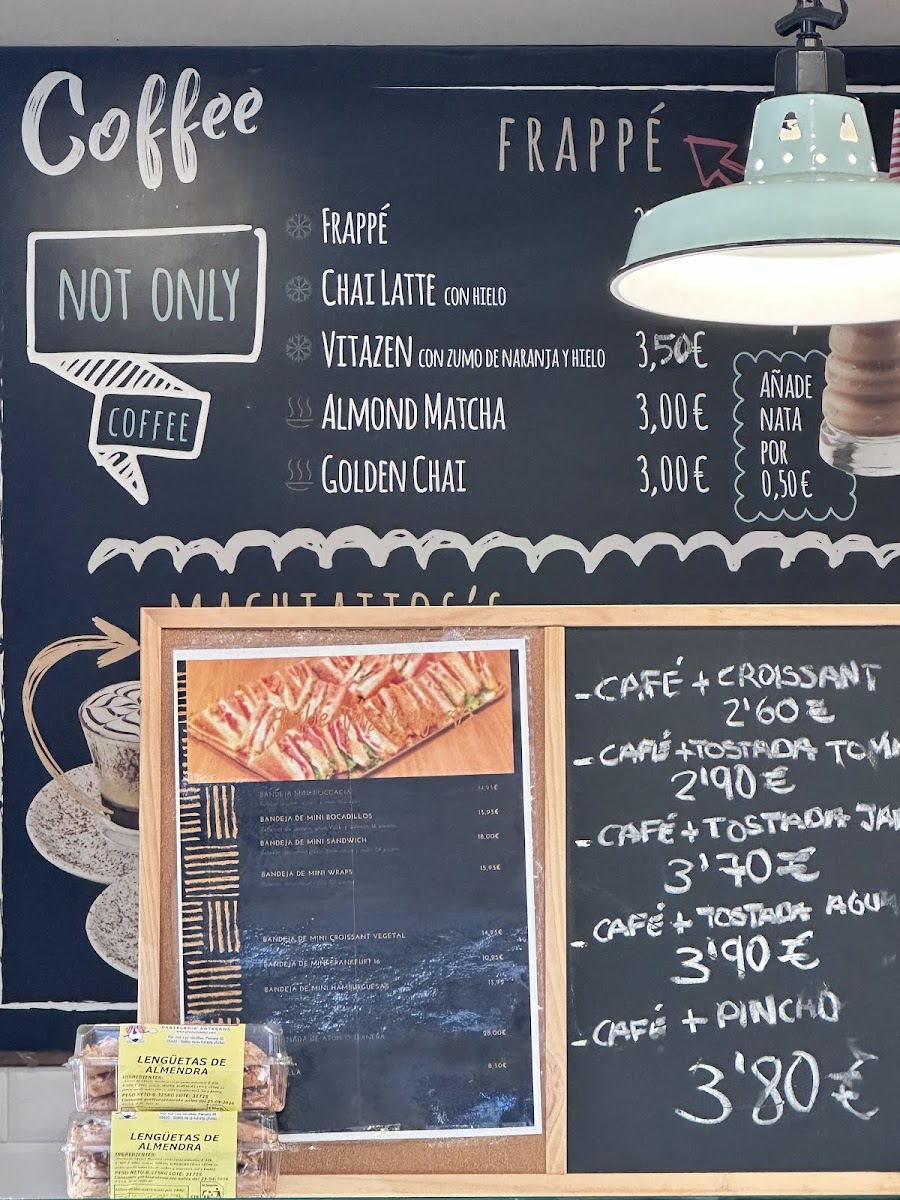 Coffee
FRAPPÉ
NOT ONLY
COFFEE
FRAPPÉ
CHAI LATTE CON HIELO
VITAZEN CON ZUMO DE NARANJA Y HIELO 3,50€
ALMOND MATCHA 3,00€
GOLDEN CHAI 3,00€
AÑADE
NATA
POR
0,50€
MACHIATTOS'S
BANDEJA DE MINI BOCADILLOS 15,95€
BANDEJA DE MINI SANDWICH 18,00€
BANDEJA DE MINI WRAPS 15,95€
BANDEJA DE MINI CROISSANT VEGETAL 14,95€
BANDEJA DE MINI FRANKFURT 16 10,95€
BANDEJA DE MINI HAMBURGUESAS 15,95
28,00€
8,50€
-CAFÉ + CROISSANT
2'60€
-CAFÉ+TOSTADA TOMA
2'90€
-CAFÉ+TOSTADA JA
3'70€
-CAFÉ+TOSTADA AGU
3'90€
-CAFÉ + PINCHO
3'80€
PASTELERÍA ARTESANA
LENGÜETAS DE
ALMENDRA
INGREDIENTES:
PESO NETO: 0,325KG LOTE: 31725
LENGÜETAS DE
ALMENDRA
INGREDIENTES:
PESO NETO: 0,325KG LOTE: 31725